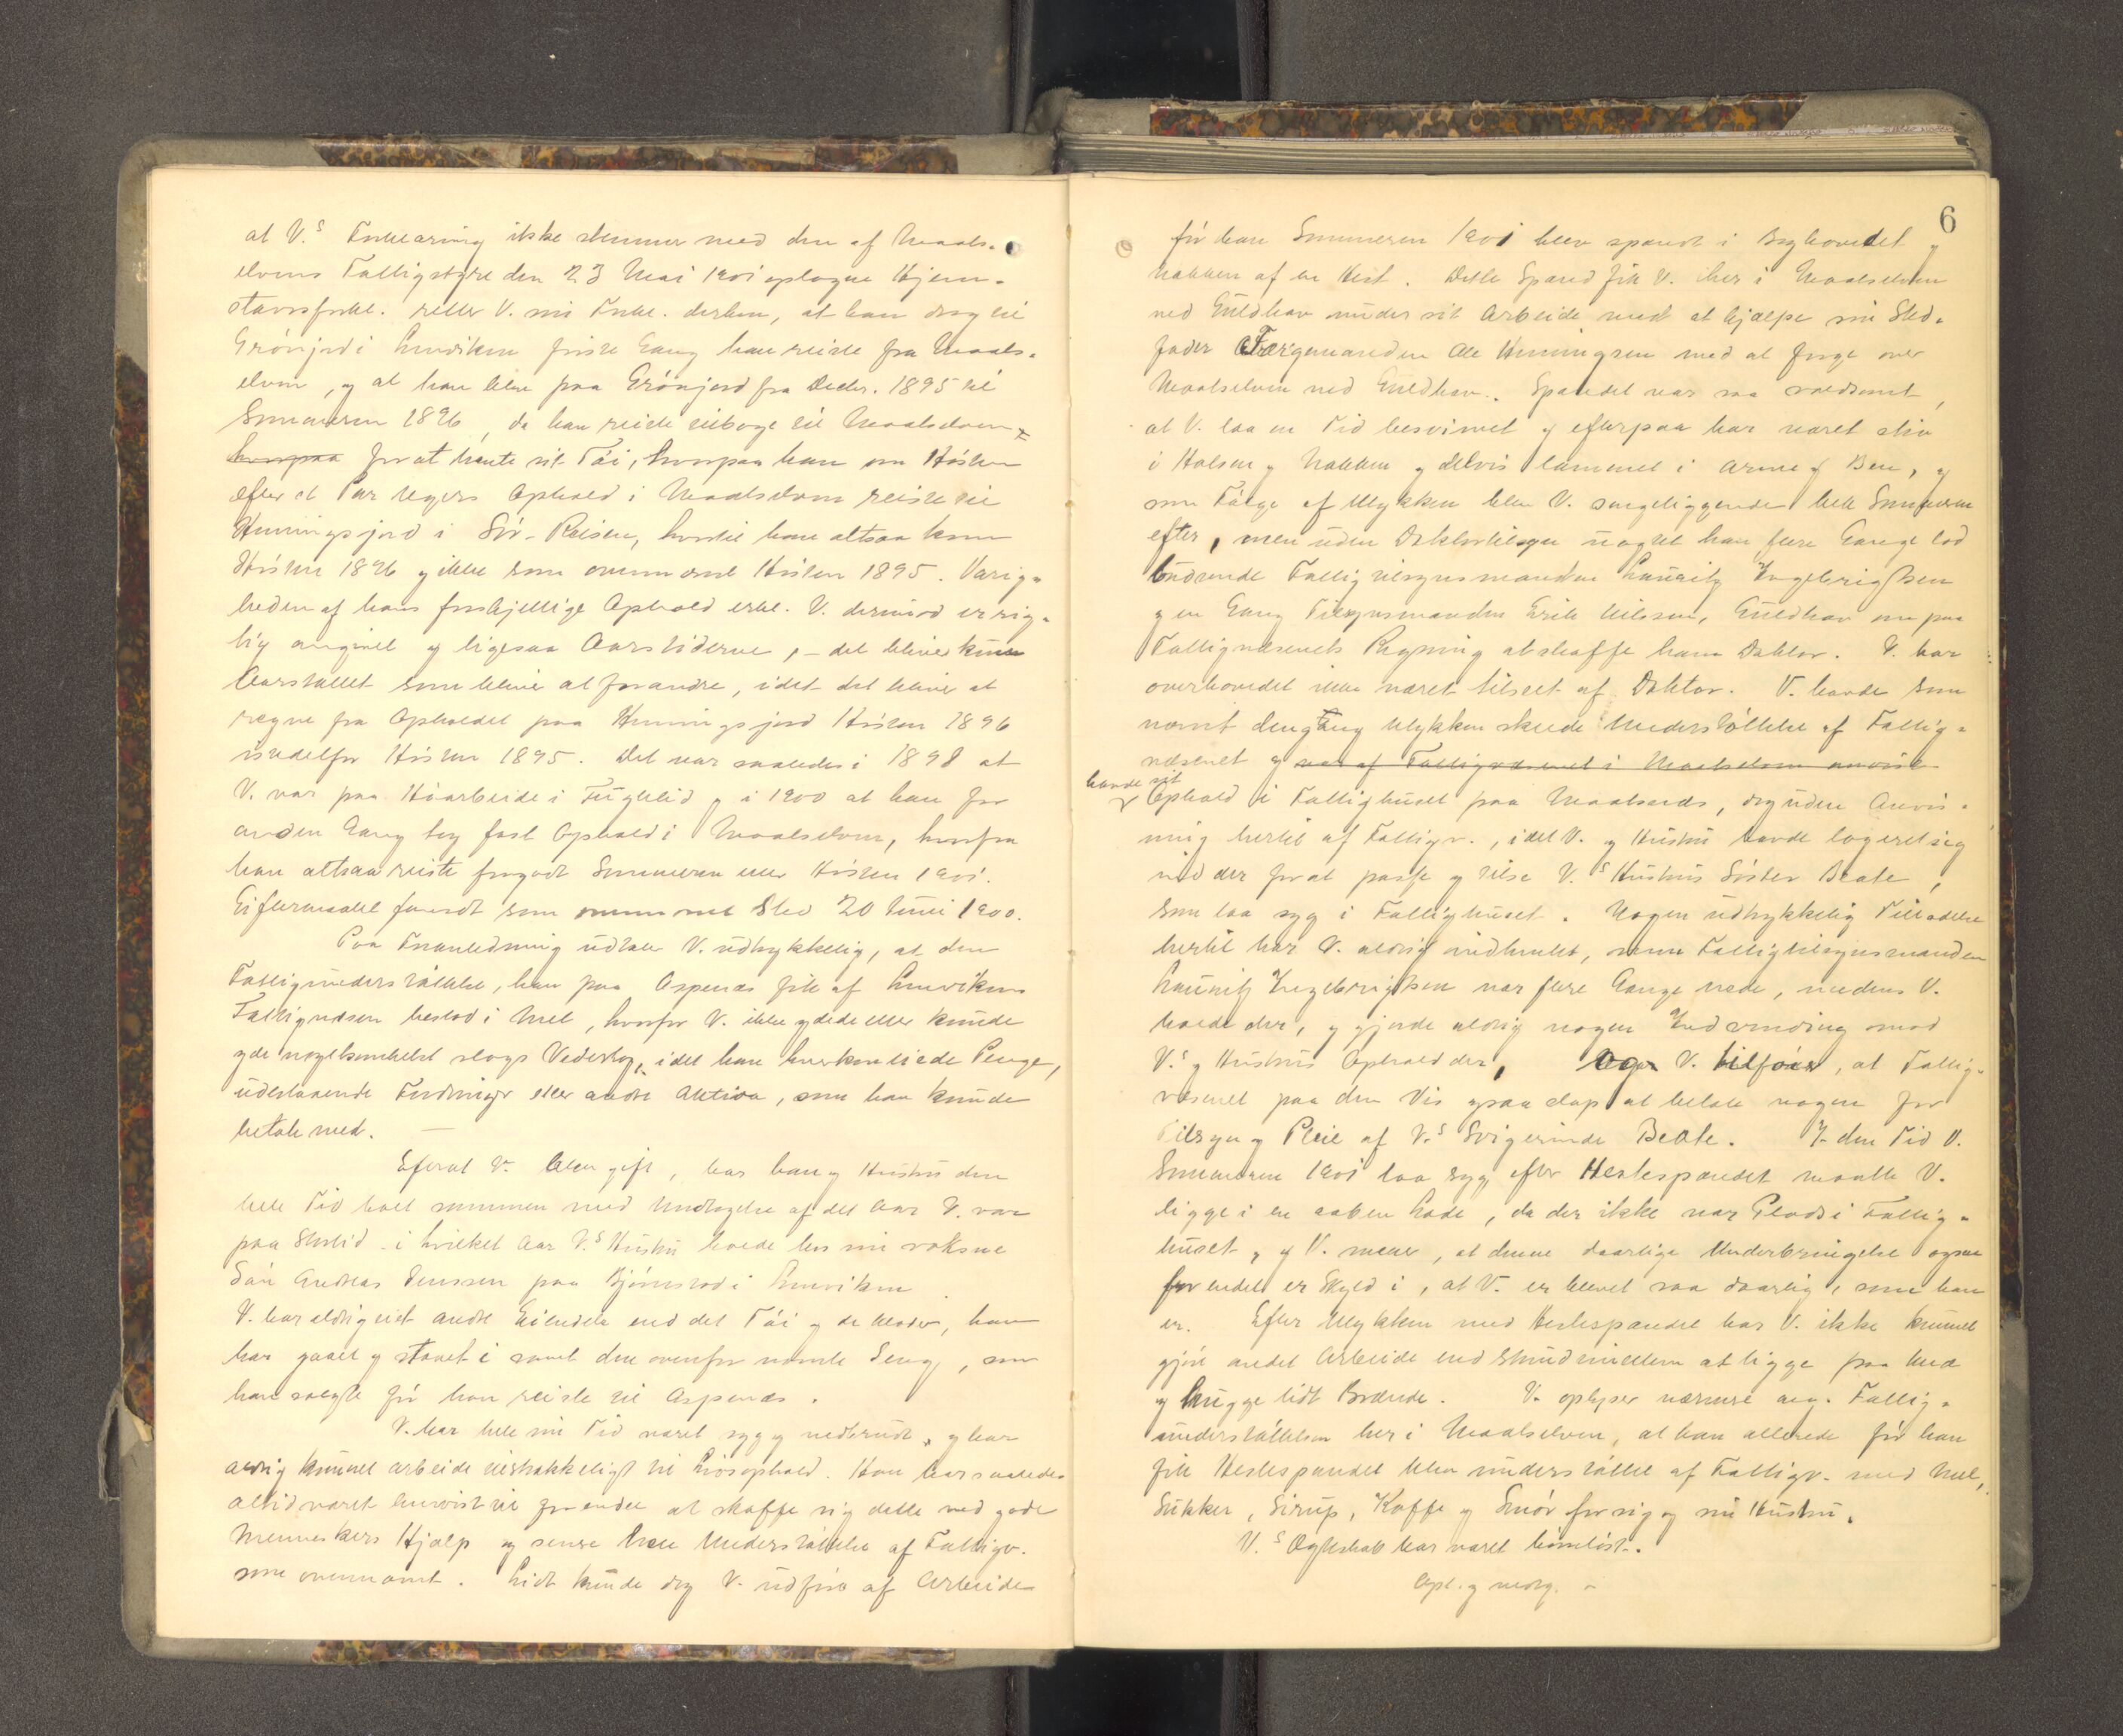 at V.s Forklaring ikke stemmer med den af Maals-
elvens Fattigstyre den 23 Mai 1901 optagne Hjem-
stavnsforkl. retter V. sin Forkl. derhen, at han drog til
Grønjord i Lenviken første Gang han reiste fra Maals-
elven, og at han blev paa Grønjord fra Decbr. 1895 til
Sommeren 1896, da han reiste tilbage til Maalselven
hvorpaa for at hente sit Tøi, hvorpaa han om Høsten
efter et Par Ugers Ophold i Maalselven reiste til
Henningsjord i Sør-Reisen, hvortil han altsaa kom
Høsten 1896 og ikke som ovennævnt Høsten 1895. Varig-
heden af hans forskjellige Ophold erkl. V. dermod er rig-
tig angivet og ligesaa Aarstiderne, - det bliver kun
Aarstallet som bliver at forandre, idet det bliver at
regne fra Opholdet paa Henningsjord Høsten 1896
istedetfor Høsten 1895. Det var saaledes i 1898 at
V. var paa Høarbeide i Fuglelid og i 1900 at han for
anden Gang tog fast Ophold i Maalselven, hvorfra
han altsaa reiste forgodt Sommeren eller Høsten 1901.
Giftermaalet fandt som ovennævnt Sted 20 Juni 1900.
Paa Foranledning udtaler V. udtrykkelig, at den
Fattigunderstøttelse, han paa Aspenes fik af Lenvikens
Fattigvæsen bestod i Mel, hvorfor V. ikke ydede eller kunde
yde nogetsomhelst slags Vederlag, idet han hverken eiede Penge,
udestaaende Fordringer eller andre Aktiva, som han kunde
betale med. —
Efterat V. blev gift, har han og Hustru den
hele Tid boet sammen med Undtagelse af det Aar V. var
paa Skolid i hvilket Aar V.s Hustru boede hos sin voksne
Søn Andreas Jenssen paa Bjørnstad i Lenviken.
V. har aldrig eiet andre Eiendele end det Tøi og de Klæder, han
har gaaet og staaet i samt den ovenfor nævnte Seng, som
han solgte før han reiste til Aspenes.
V. har hele sin Tid været syg og nedbrudt, og har
aldrig kunnet arbeide tilstrækkeligt til Livsophold. Han har saaledes
altid været henvist til for endel at skaffe sig dette ved gode
Menneskers Hjælp og senere hen Understøttelse af Fattigv.
som ovennævnt. Lidt kunde dog V. udføre af Arbeide
6
før han Sommeren 1901 blev spændt i Baghovedet og
Nakken af en Hest. Dette Spænd fik V. her i Maalselven
ved Guldhav under sit Arbeide med at hjælpe sin Sted-
fader Færgemanden Ole Henningsen med at færge over
Maalselven ved Guldhav. Spændet var saa voldsomt,
at V. laa en Tid besvimet og efterpaa har været stiv
i Halsen og Nakken og delvis lammet i Arme og Ben, og
som Følge af Ulykken blev V. sengeliggende hele Sommeren
efter, men uden Doktortilsyn uagtet han flere Gange lod
budsende Fattigtilsynsmanden Lauritz Ingebrigtsen
og en Gang Tilsynsmanden Erik Nilssen, Guldhav om paa
Fattigvæsenets Regning at skaffe ham Doktor. V. har
overhovedet ikke været tilseet af Doktor. V. havde som
nævnt dengang Ulykken skede Understøttelse af Fattig-
væsenet og var af Fattigvæsenet i Maalselven anvist
havde sit Ophold i Fattighuset paa Maalsnes, dog uden Anvis-
ning hertil af Fattigv., idet V. og Hustru havde logeret sig
ind der for at passe og tilse V.s Hustrus Søster Beate,
som laa syg i Fattighuset. Nogen udtrykkelig Tilladelse
hertil har V. aldrig indhentet, men Fattigtilsynsmanden
Lauritz Ingebrigtsen var flere Gange nede, medens V.
boede der, og gjorde aldrig nogen Indvending mod
V.s og Hustrus Ophold der, V. tilføier, at Fattig-
væsenet paa den Vis ogsaa slap at betale nogen for
Tilsyn og Pleie af V.s Svigerinde Beate. I den Tid V.
Sommeren 1901 laa syg efter Hestespændet maatte V.
ligge i en aaben Lade, da der ikke var Plads i Fattig-
huset, og V. mener, at denne daarlige Underbringelse ogsaa
for endel er Skyld i, at V. er blevet saa daarlig, som han
er. Efter Ulykken med Hestespændet har V. ikke kunnet
gjøre andet Arbeide end stundimellem at ligge paa Knæ
og hugge lidt Brænde. V. oplyser nærmere ang. Fattig-
understøttelsen her i Maalselven, at han allerede før han
fik Hestespændet blev understøttet af Fattigv. med Mel,
Sukker, Sirup, Kaffe og Smør for sig og sin Hustru.
V.s Ægteskab har været barnløst.
Opl. og vedg. -